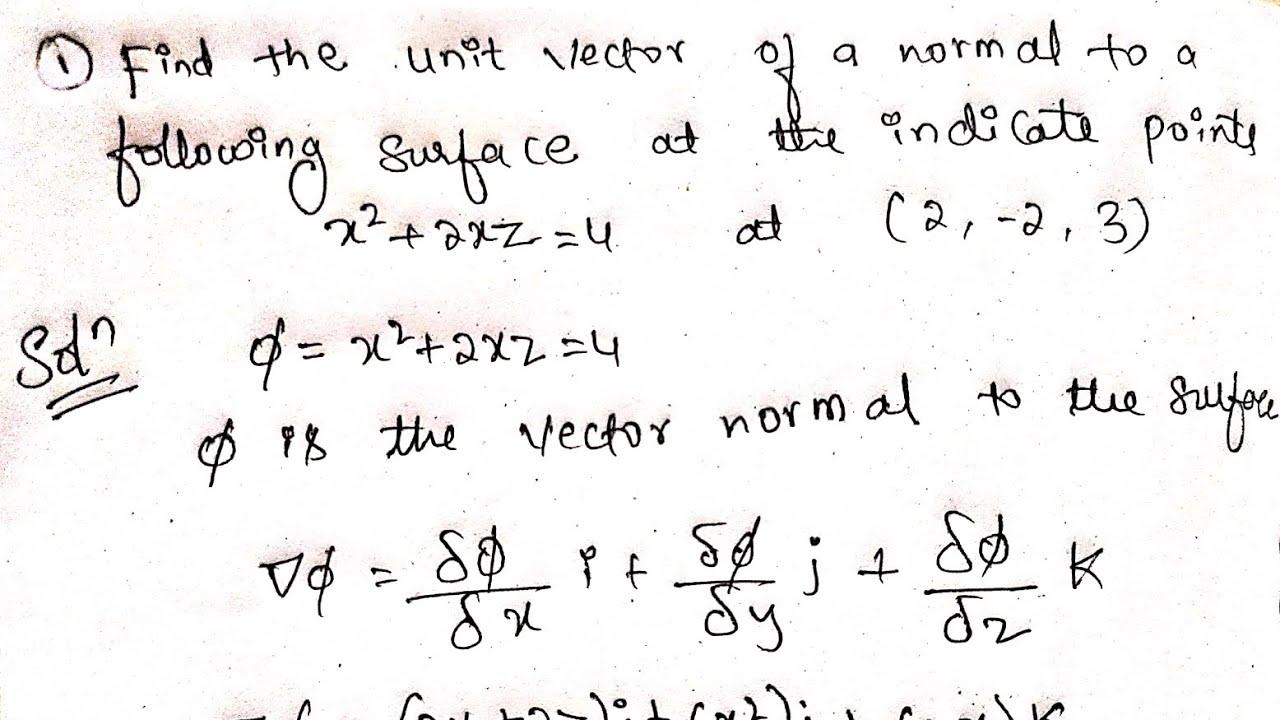 ① Find the unit vector of a normal to a
following surface at the indicate points
x²+2xz=4 at (2, -2, 3)
Solⁿ φ = x²+2xz=4
φ is the vector normal to the surface
∇φ = δφ/δx i + δφ/δy j + δφ/δz K